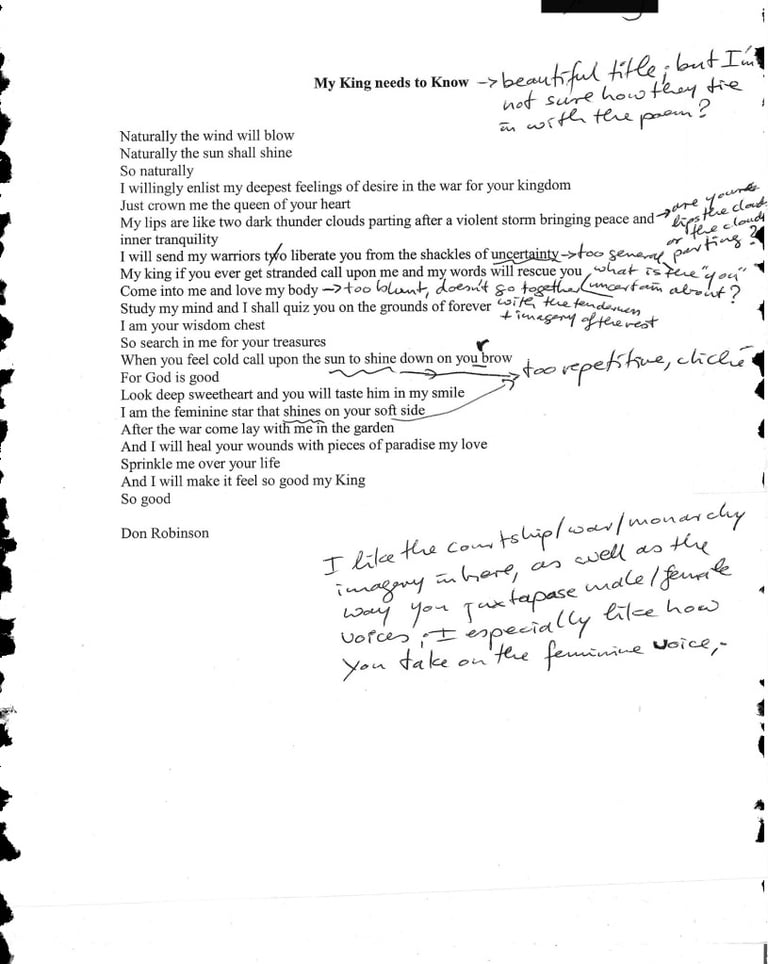 My King needs to Know -> beautiful title; but I'm
not sure how they tie
in with the poem?
Naturally the wind will blow
Naturally the sun shall shine
So naturally
I willingly enlist my deepest feelings of desire in the war for your kingdom
Just crown me the queen of your heart
My lips are like two dark thunder clouds parting after a violent storm bringing peace and -> are your
inner tranquility
lips the clouds
or the clouds
parting?
I will send my warriors two liberate you from the shackles of uncertainty -> too general
My king if you ever get stranded call upon me and my words will rescue you what is the "you"
uncertain about?
Come into me and love my body -> too blunt, doesn't go together
Study my mind and I shall quiz you on the grounds of forever with the tenderness
+ imagery of the rest
I am your wisdom chest
So search in me for your treasures
r
When you feel cold call upon the sun to shine down on you brow
For God is good
too repetitive, cliché
Look deep sweetheart and you will taste him in my smile
I am the feminine star that shines on your soft side
After the war come lay with me in the garden
And I will heal your wounds with pieces of paradise my love
Sprinkle me over your life
And I will make it feel so good my King
So good
Don Robinson
I like the courtship/war/monarchy
imagery in here, as well as the
way you juxtapase male/female
voices, I especially like how
you take on the feminine voice,-